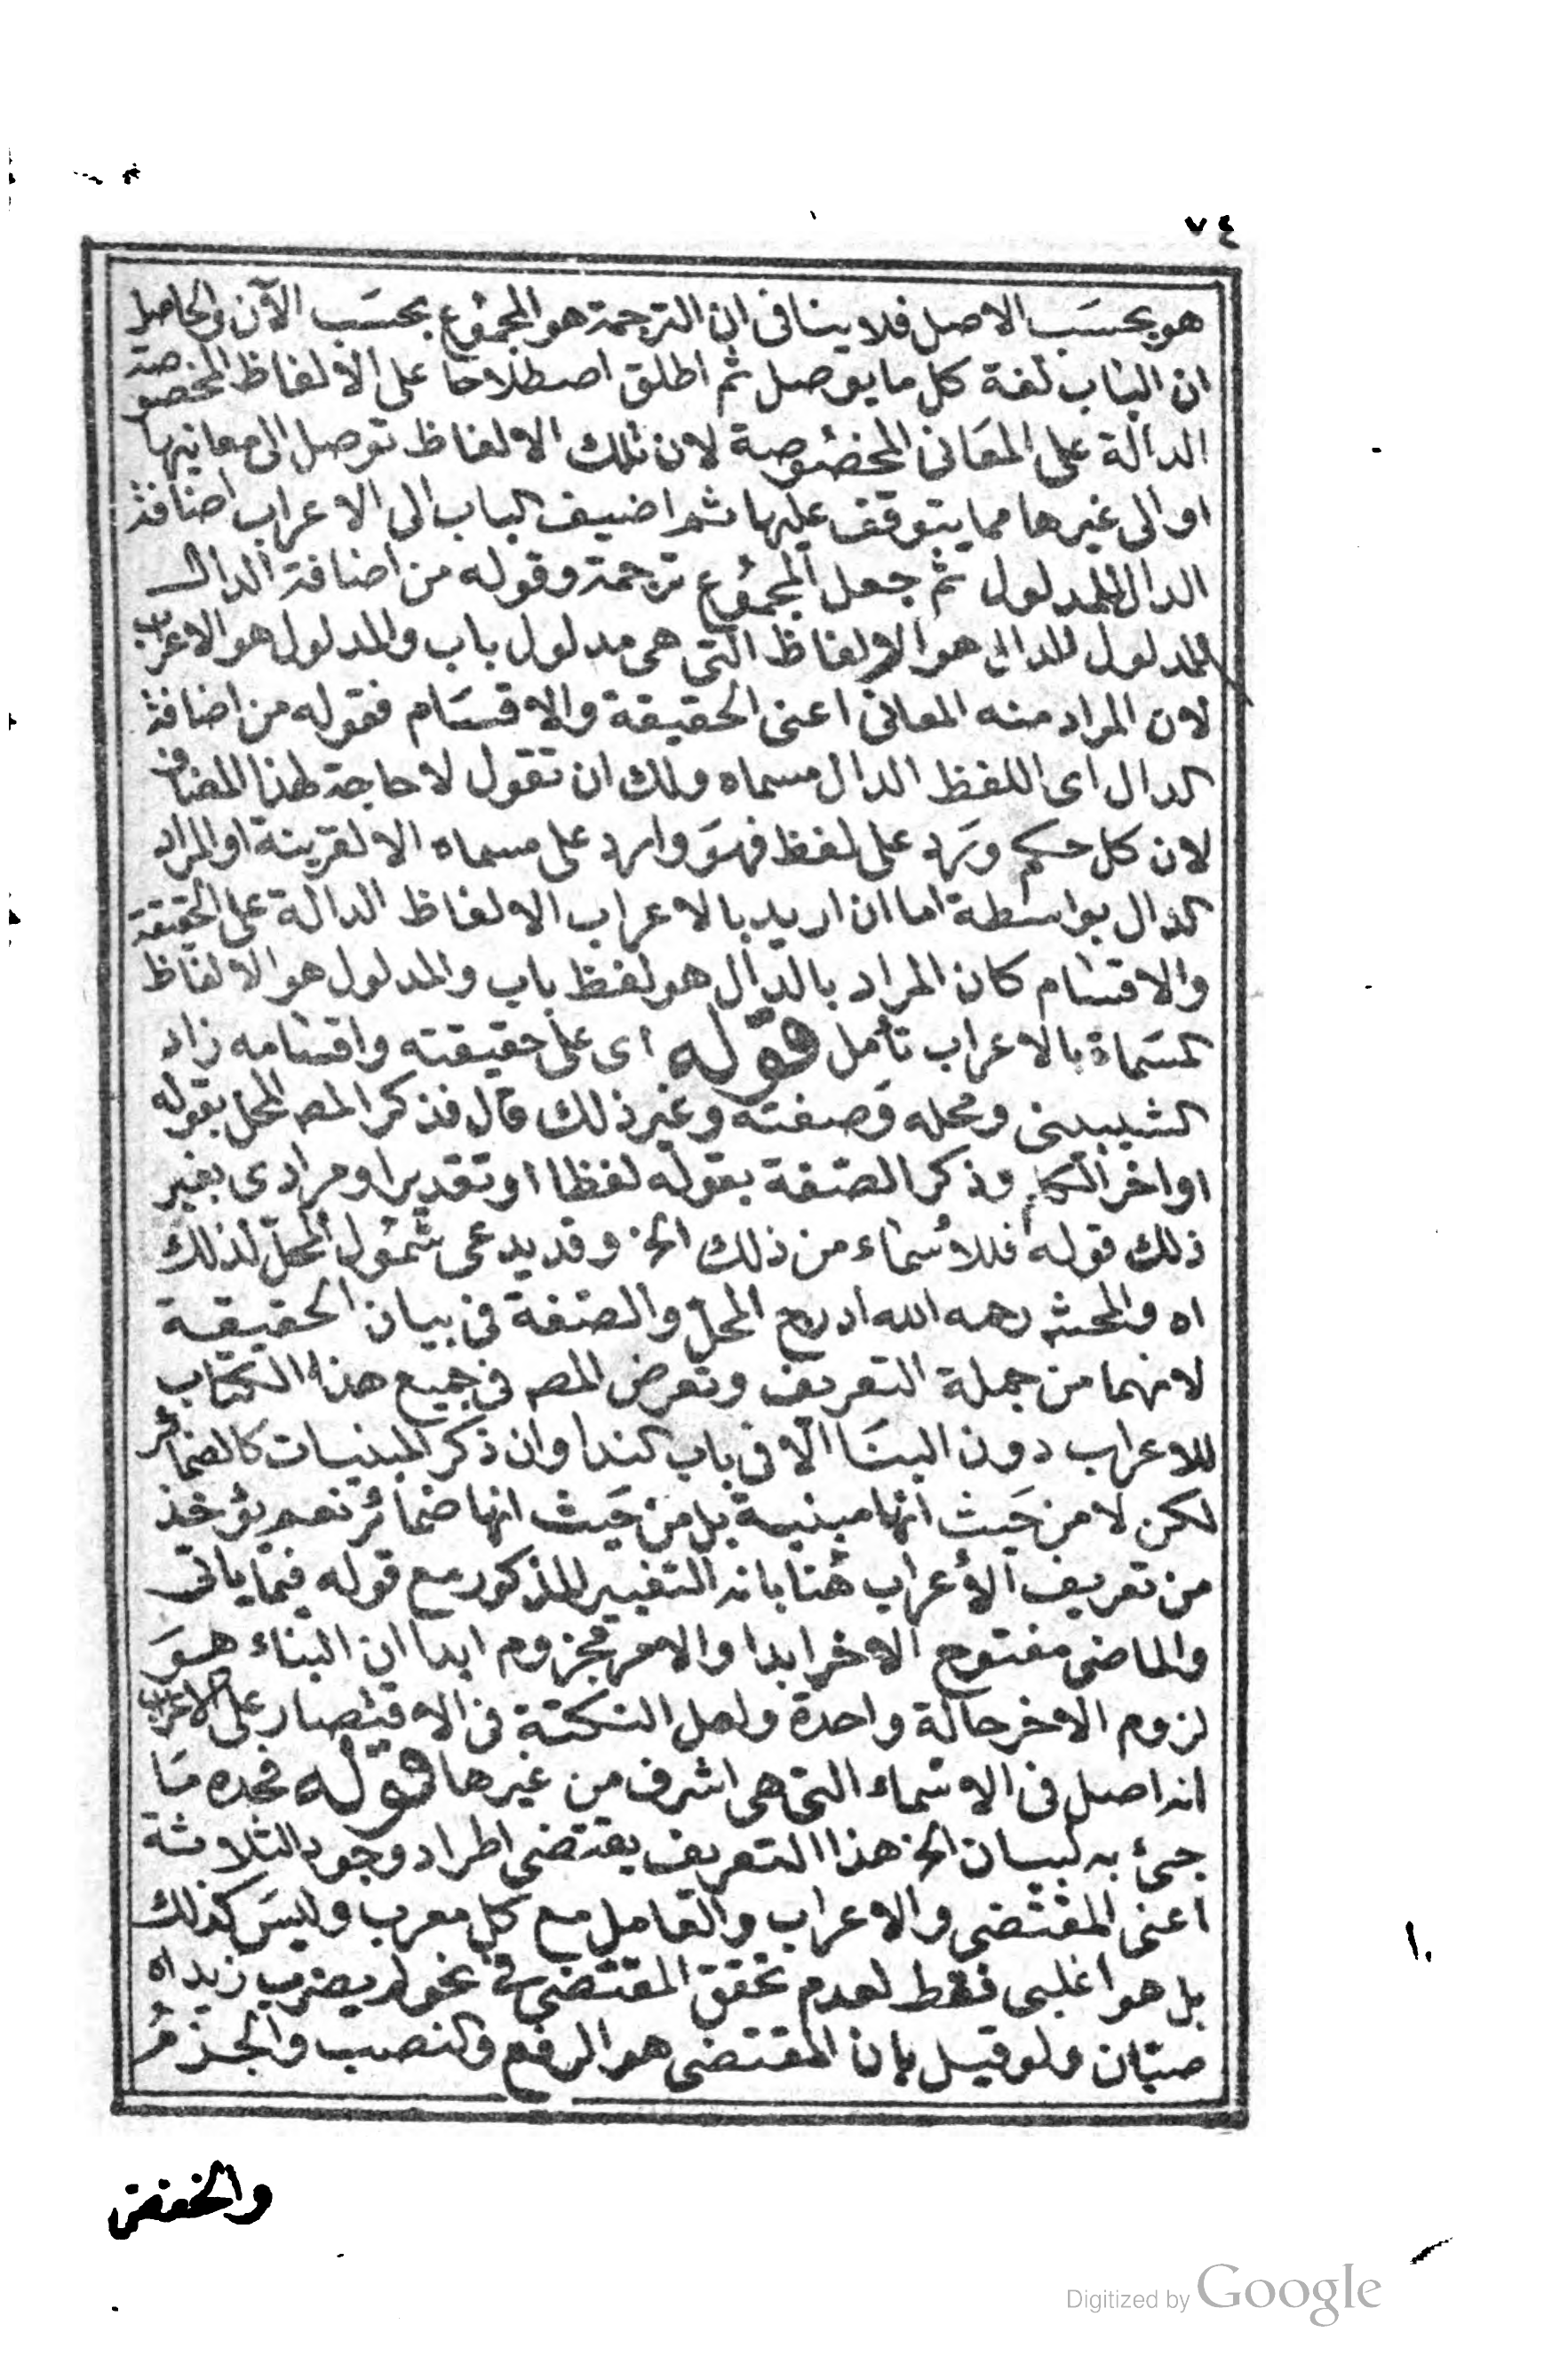 ٧٤
هو بحسَب الاصل فلا ينافى ان الترجمة هو المجموُع بحسَب الآن والحاصل
ان الباب لغة كل ما يوصل ثم اطلق اصطلاحا على الالفاظ المخصوصة
الدالة على المعَانى المخصُوصة لان تلك الالفاظ توصل الى معانيها
او الى غيرها مما يتوقف عليها ثم اضيف الباب الى الاعراب اضافة
الدال للمدلول ثم جعل المجموُع ترجمة وقوله من اضافة الدال
للمدلول الدال هو الالفاظ التى هى مدلول باب والمدلول هو الاعراب
لان المراد منه المعانى اعنى الحقيقة والاقسَام فقوله من اضافة
الدال اى اللفظ الدال مسماه ولك ان تقول لا حاجة لهذا المضاف
لان كل حكم ورَد على لفظ فهوَ وارد على مسماه الا لقرينة او المراد
الدال بواسطة اما ان اريد بالاعراب الالفاظ الدالة على الحقيقة
والاقسام كان المراد بالدال هو لفظ باب والمدلول هو الالفاظ
المسَماة بالاعراب تأمل قوله اى على حقيقته واقسامه زاد
الشيبينى ومحله وَصفته وغير ذلك قال فذكر المصـ المحل بقوله
اواخر الكلم وذكر الصفة بقوله لفظا او تقديرا ومرادى بغير
ذلك قوله فللاسُماء من ذلك الخ وقد يدعى شمُول المحلّ لذلك
اه والمحشى رحمه الله ادرج المحلّ والصفة فى بيان الحقيقة
لانهما من جملة التعريف وتعرض المصـ فى جميع هذا الكتاب
للاعراب دون البنَا الّا فى باب الندا وان ذكر المبنيات كالضمائر
لكن لا من حَيث انها مبنية بل من حَيث انها ضمائر نعم يؤخذ
من تعريف الاعراب هُنا بانه التغيير المذكور مع قوله فيما ياتى
والماضى مفتوح الاخر ابدا والامر مجزوم ابدا ان البناء هوَ
لزوم الاخر حالة واحدة ولعل النكتة فى الاقتصار على الاعراب
انه اصل فى الاسماء التى هى اشرف من غيرها قوله فحده مَا
جئ به لبيان الخ هذا التعريف يقتضى اطراد وجود الثلاثة
اعنى المقتضى والاعراب والعامل مع كل معرب وليسَ كذلك
بل هو اغلبى فقط لعدم تحقق المقتضى فى نحو لم يضرب زيد اه
صبّان ولو قيل بان المقتضى هو الرفع والنصب والجزم
والخفض
١٠
Digitized by Google